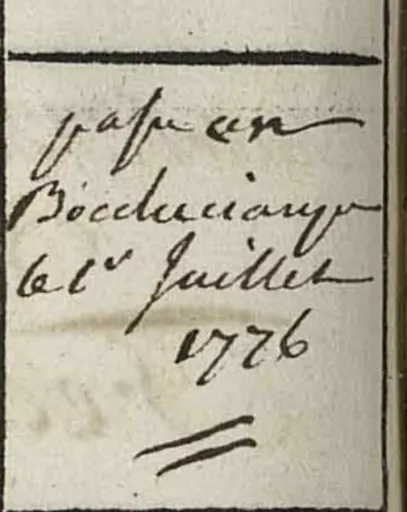 passé en
le 1er Juillet
1776